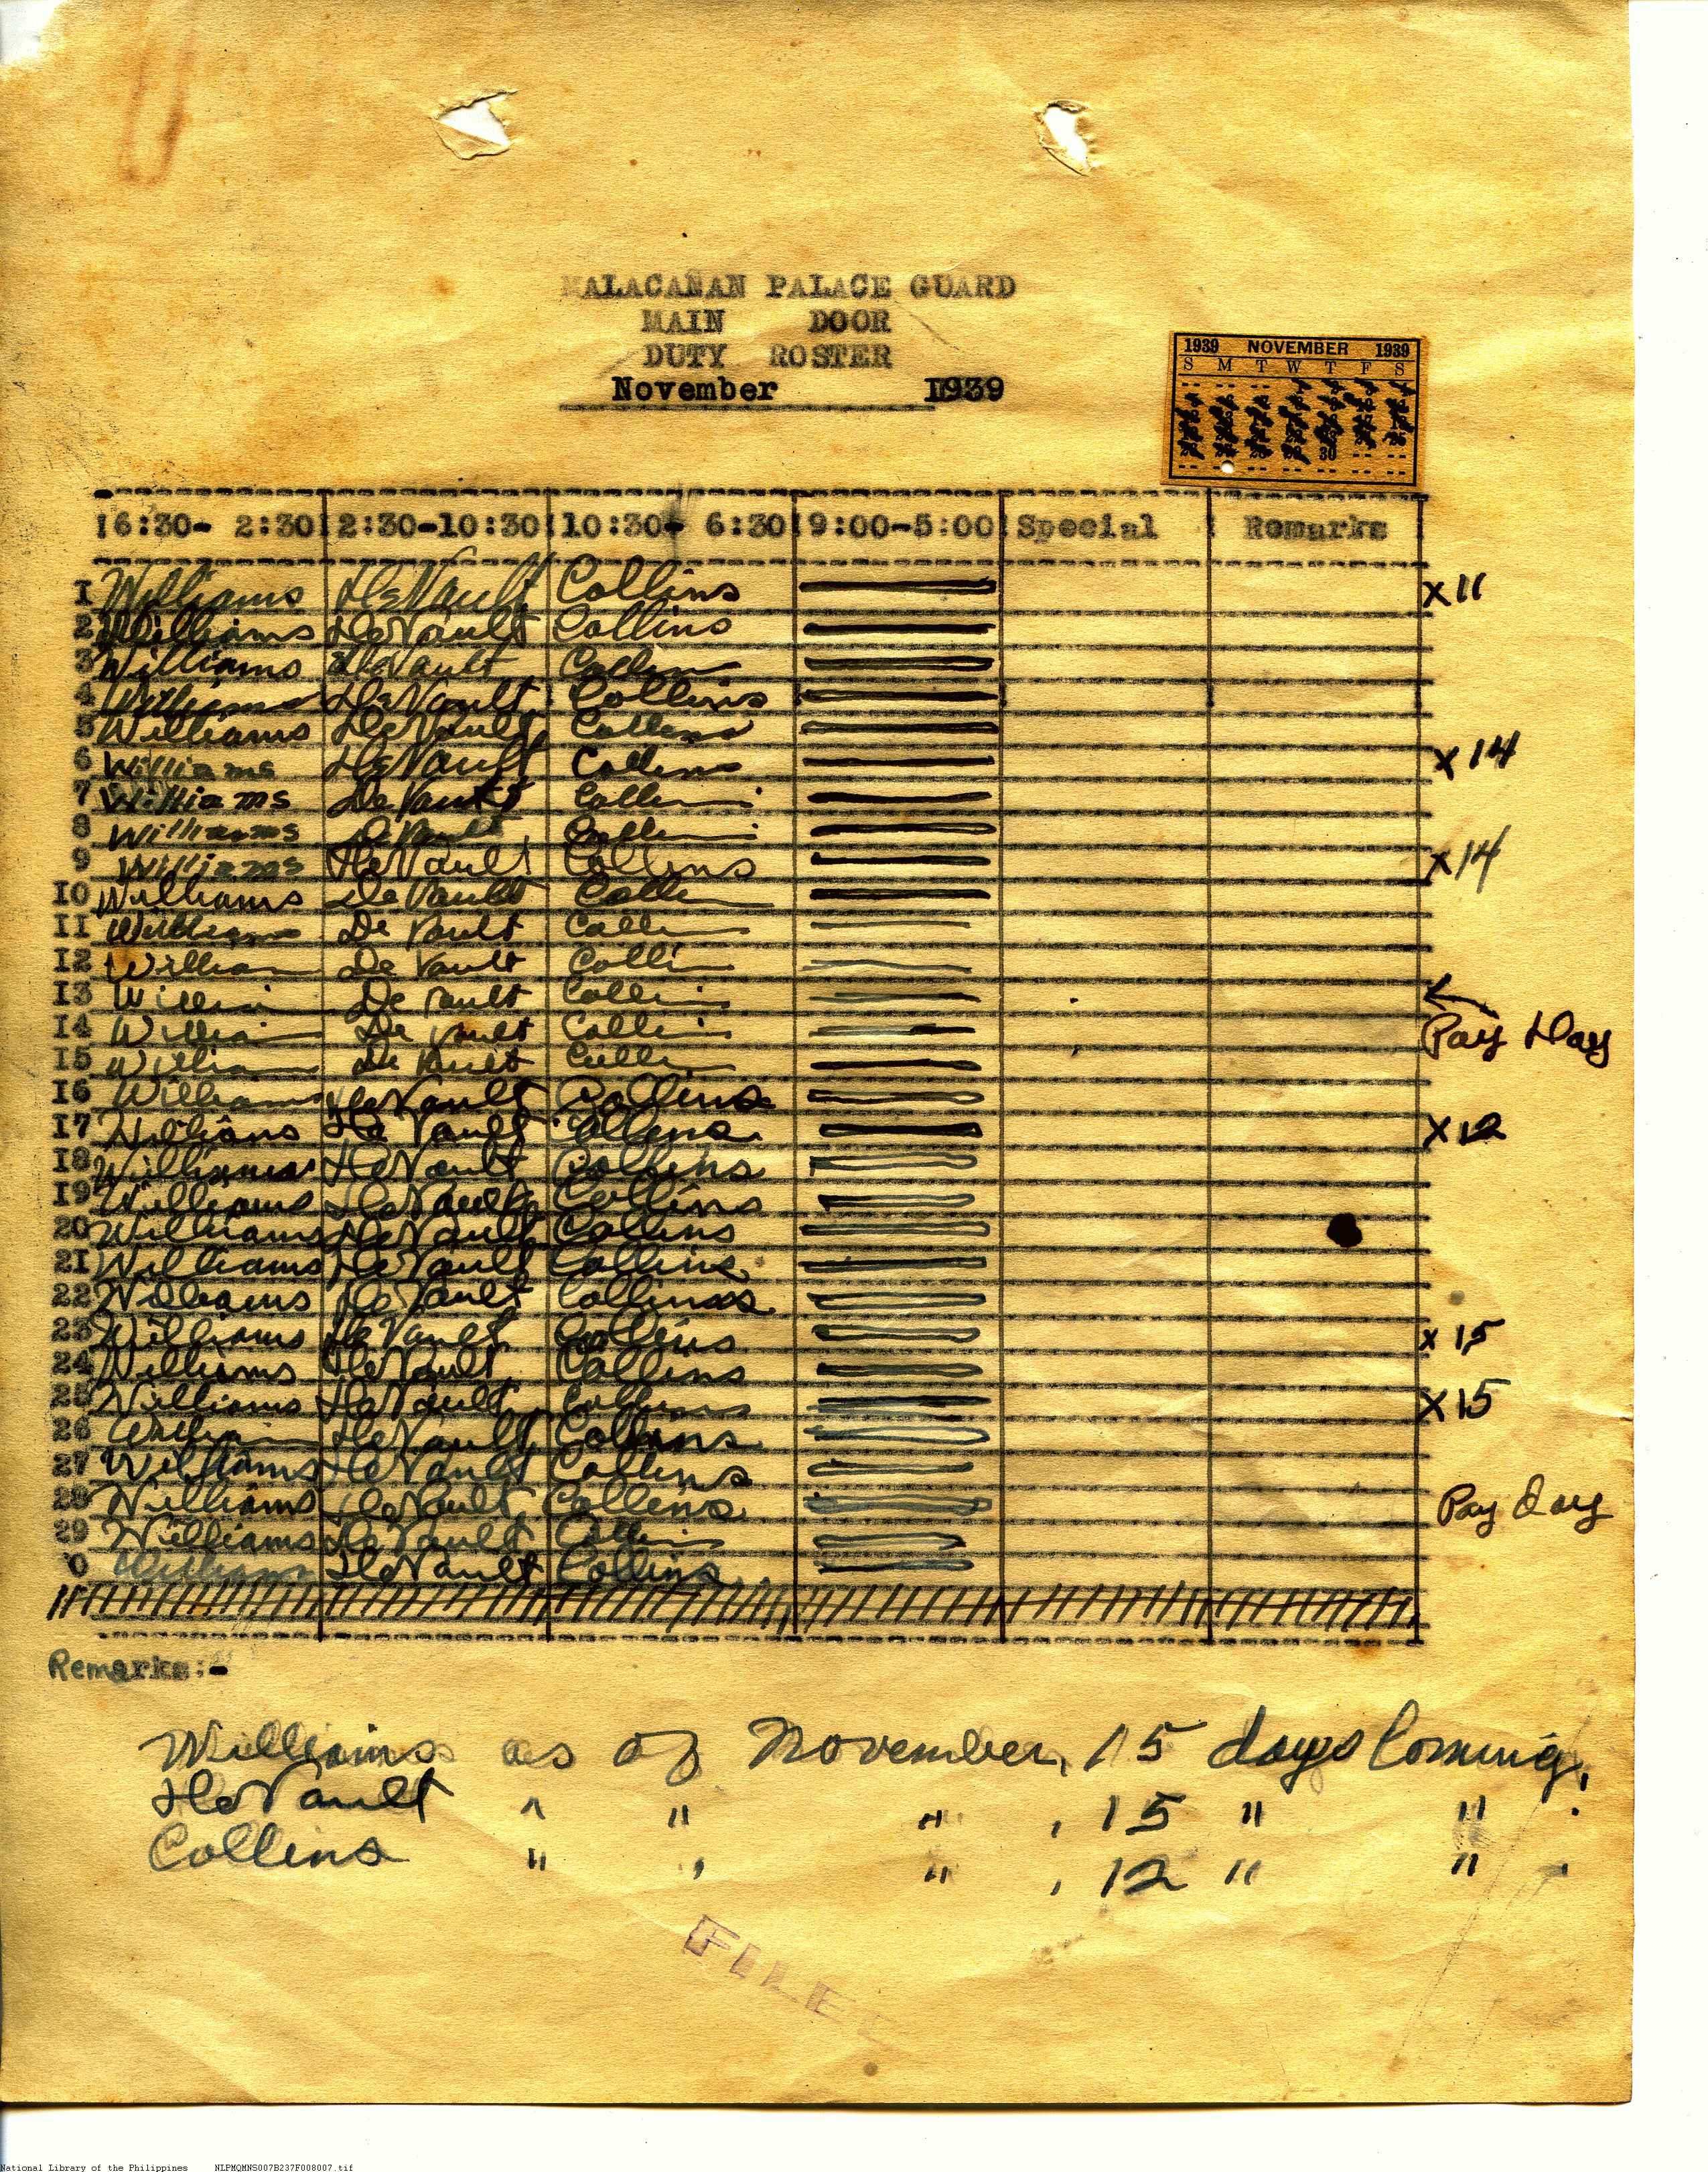 MALACAÑAN PALACE GUARD
MAIN DOOR
DUTY ROSTER
November 1939
1939 NOVEMBER 1939
S M T W T F S
30
6:30- 2:30 2:30-10:30 10:30- 6:30 9:00-5:00 Special Remarks
I Williams DeVault Collins X11
2 Williams DeVault Collins
3 Williams DeVault Collins
4 Williams DeVault Collins
5 Williams DeVault Collins
6 Williams DeVault Collins X14
7 Williams DeVault Collins
8 Williams DeVault Collins
9 Williams DeVault Collins X14
I0 Williams DeVault Collins
II Williams De Vault Collins
I2 Williams De Vault Collins
I3 Williams De Vault Collins
I4 Williams De Vault Collins Pay Day
I5 Williams De Vault Collins
I6 Williams DeVault Collins
I7 Williams De Vault Collins X12
I8 Williams DeVault Collins
I9 Williams DeVault Collins
20 Williams DeVault Collins
2I Williams DeVault Collins
22 Williams DeVault Collins
23 Williams DeVault Collins X 15
24 Williams DeVault Collins
25 Williams DeVault Collins X15
26 Williams DeVault Collins
27 Williams DeVault Collins
28 Williams DeVault Collins Pay day
29 Williams DeVault Collins
0 Williams DeVault Collins
Remarks:-
Williams as of November, 15 days Coming.
DeVault " " " , 15 " " .
Collins " " " , 12 " " .
FILED
National Library of the Philippines NLPMQMNS007B237F008007.tif